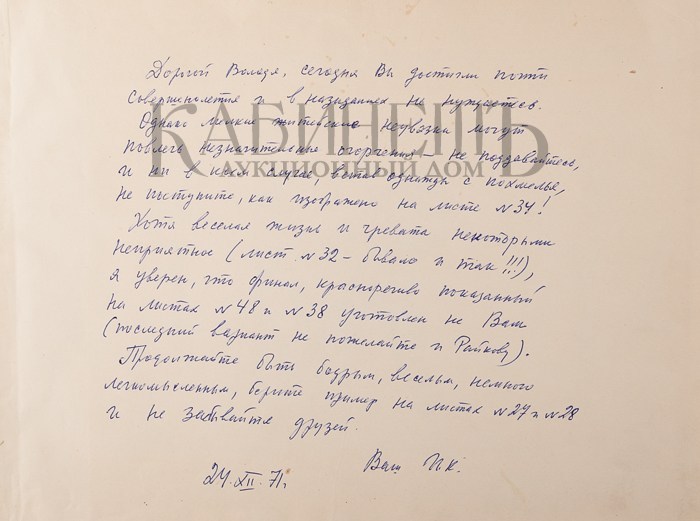 Дорогой Володя, сегодня Вы достигли почти
совершенолетия и в назиданиях не нуждаетесь.
Однако мелкие житейские неувязки могут
повлечь незначительные огорчения – не поддавайтесь,
и ни в коем случае, встав однажды с похмелья,
не поступите, как изображено на листе №34!
Хотя веселая жизнь и чревата некоторыми
неприятное (лист №32 – бывало и так!!!),
я уверен, что финал, красноречиво показанный
на листах №48 и №38 уготовлен не Вам
(последний вариант не пожелайте и Райкову).
Продолжайте быть бодрым, веселым, немного
легкомысленным, берите пример на листах №27 и №28
и не забывайте друзей.
Ваш И.К.
24.XII.71г.
КАБИНЕТЪ
АУКЦИОННЫЙ ДОМ